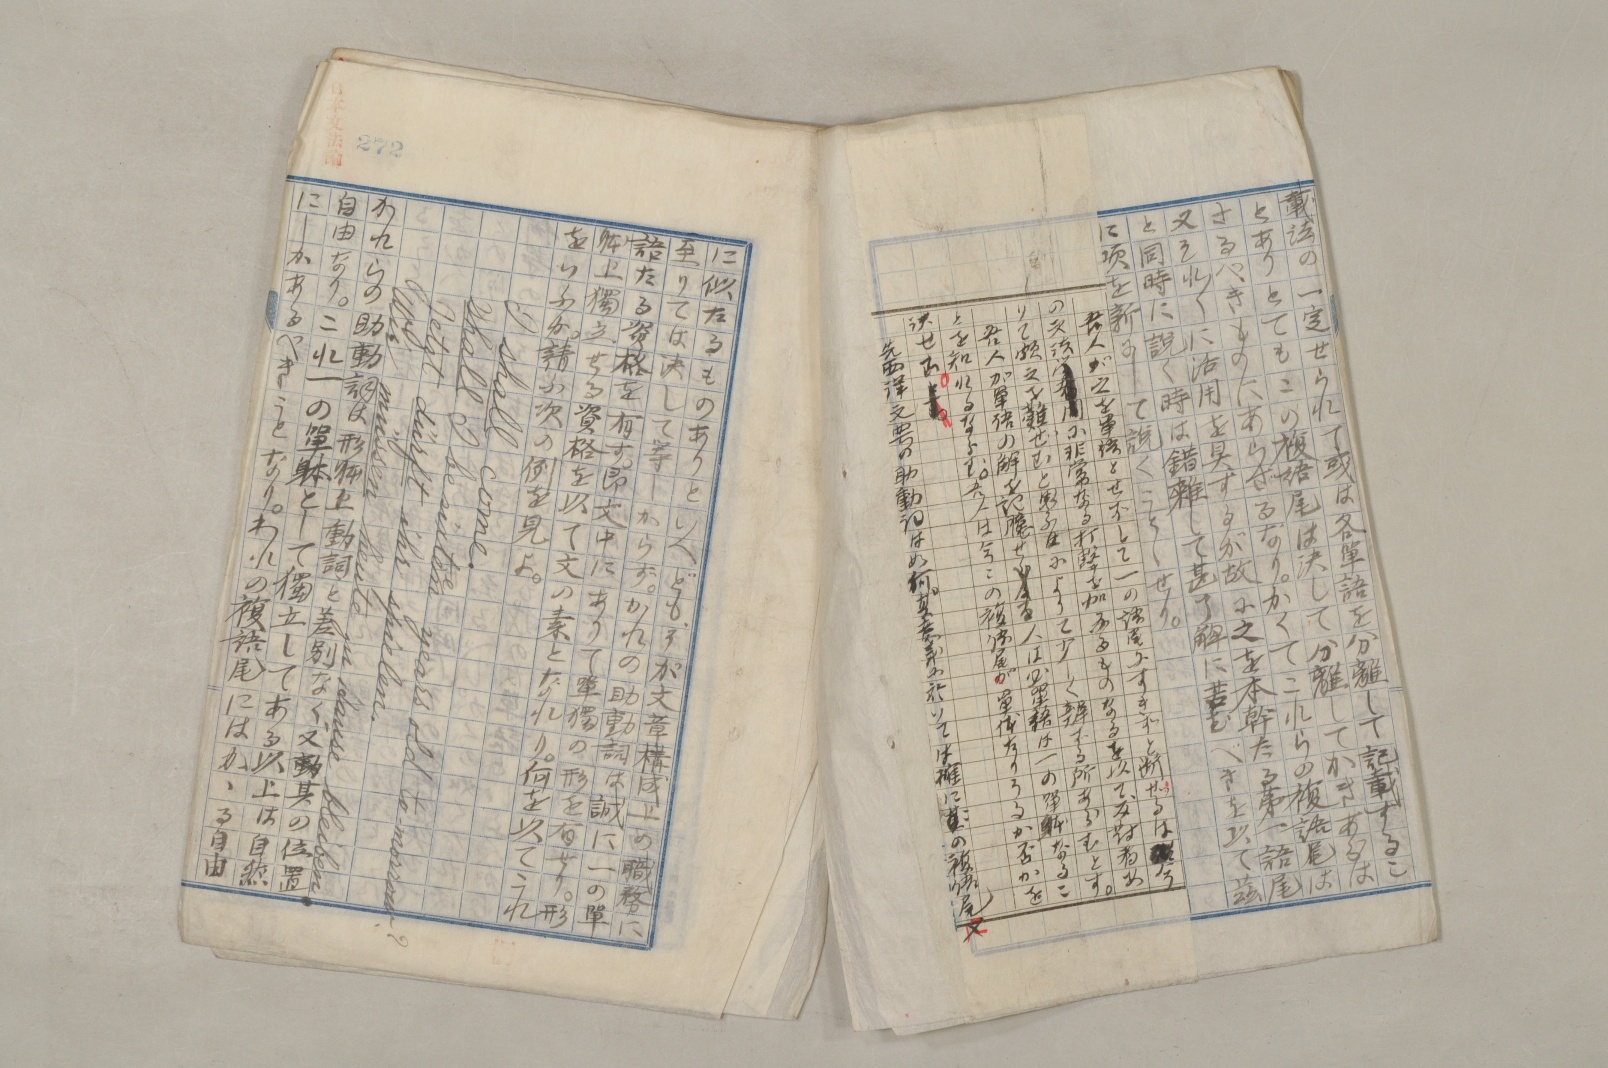 載法の一定せられて或は各單語を分離して記載するこ
とありとてもこの複語尾は決して分離してかきあるは
さるべきものにあらざるなり。かくてこれらの複語尾は
又それ〳〵に活用を具するが故に之を本幹たる第一語尾
と同時に説く時は錯雜して甚了解に苦むべきを以て茲
に項を新にして説くことゝせり。
吾人が之を單語とせずして一の語尾にすぎずと斷ずるは
非常なる打撃を加ふるものなるを以て反對者の
りて頗之を難ぜむと思ふ
吾人が單語の解を記臆せらるゝ人は必單語は一の單體なるこ
とを知れるならむ。吾人は今この複語尾が單体たりうるか否かを
決せむ
先西洋文典の助動詞は如何。其意義に於いては確に其の複語尾
272
に似たるものありといへども、すが文章構成上の職務に
至りては決して等しからず。かれの助動詞は誠に一の單
語たる資格を有す。即文中にありて單獨の形を有せり。形
躰上獨立せる資格を以て文の素となれり。何を以てこれ
をいふか請ふ次の例を見よ。
I shall come.
Shall I be sixteen years old to-morrow?
Jetzt dürft ihr spielen.
Wir müssen heute zu Hause bleiben.
かれらの助動詞は形躰上動詞と差別なく又其の位置
自由なり。これ一の單躰として獨立してある以上は自然
にしかあるべきことなり。われの複語尾にはかゝる自由